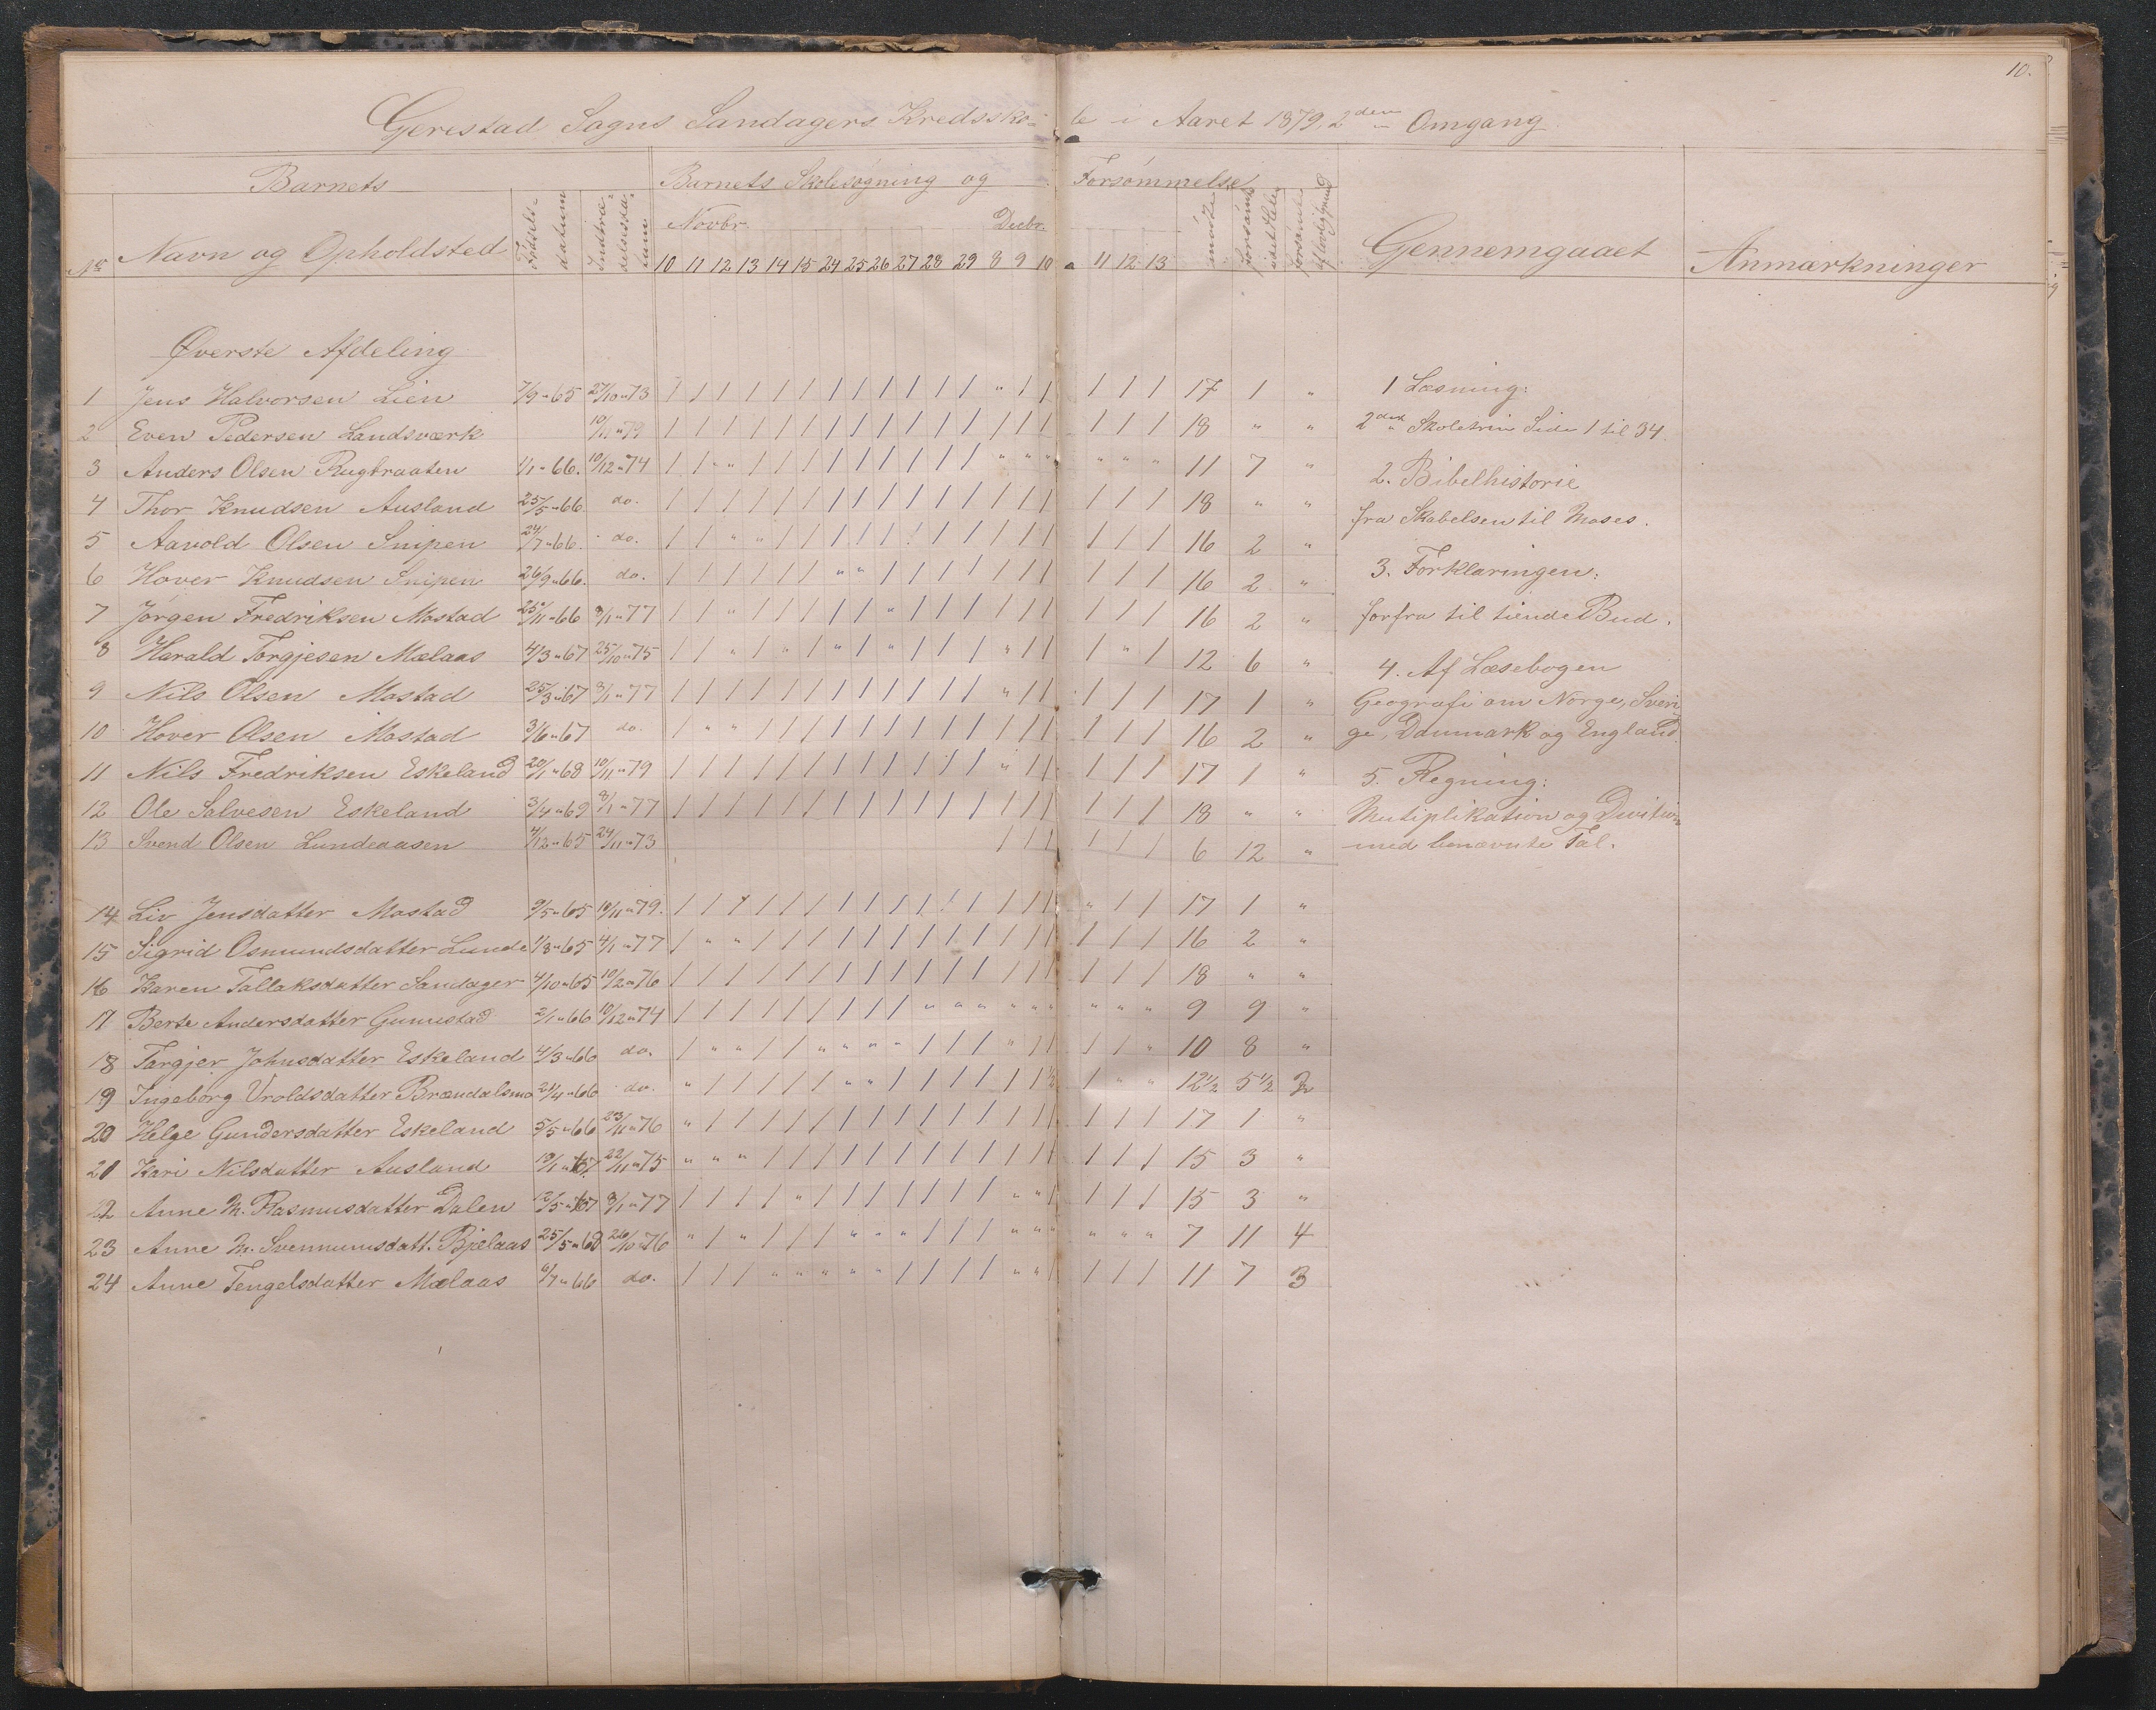 10.
Gerestad Sogns Sandagers Kredssko-le i Aaret 1879, 2den Omgang
Barnets Barnets Skolesøgning og Forsømmelse
No Navn og Opholdsted Fødsels-datum Indtræ-delsesda-tum Novbr. Decbr. mødte forsømte i det Hele forsømte af lovlig Grund Gennemgaaet Anmærkninger
10 11 12 13 14 15 24 25 26 27 28 29 8 9 10 11 12 13
Øverste Afdeling
1 Jens Halvorsen Lien 7/9 "65 27/10 "73 / / / / / / / / / / / / " / / / / / 17 1 "
2 Even Pedersen Landsværk 10/11 "79 / / / / / / / / / / / / / / / / / / 18 " "
3 Anders Olsen Rugbraaten 1/1 "66. 10/12 "74 / / " / / / / / / / / / " " " " " " 11 7 "
4 Thor Knudsen Ausland 25/5 "66 do. / / / / / / / / / / / / / / / / / / 18 " "
5 Aavold Olsen Snipen 24/7 "66. do. / / " " / / / / / / / / / / / / / / 16 2 "
6 Hover Knudsen Snipen 26/9 "66. do. / / / / / / " " / / / / / / / / / / 16 2 "
7 Jørgen Fredriksen Mostad 25/11 "66 3/1 "77 / / " / / / / / " / / / / / / / / / 16 2 "
8 Harald Torgjesen Mælaas 4/3 "67 25/10 "75 / / " / " / " / " / / / " / / / " / 12 6 "
9 Nils Olsen Mostad 25/3 "67 3/1 "77 / / / / / / / / / / / / " / / / / / 17 1 "
10 Hover Olsen Mostad 3/6 "67 do. / " " / / / / / / / / / / / / / / / 16 2 "
11 Nils Fredriksen Eskeland 20/1 "68 10/11 "79 / / / / / / / / / / / / " / / / / / 17 1 "
12 Ole Salvesen Eskeland 3/4 "69 8/1 "77 / / / / / / / / / / / / / / / / / / 18 " "
13 Svend Olsen Lundeaasen 4/12 "65 24/11 "73 / / / / / / 6 12 "
14 Liv Jensdatter Mostad 9/5 "65 10/11 "79. / / / / / / / / / / / / / / / " / / 17 1 "
15 Sigrid Osmundsdatter Lunde 1/8 "65 4/1 "77 / " " / / / / / / / / / / / / / / / 16 2 "
16 Karen Tallaksdatter Sandager 4/10 "65 10/2 "76 / / / / / / / / / / / / / / / / / / 18 " "
17 Berte Andersdatter Gumstad 2/1 "66 10/12 "74 / / / / / / / / / " " " " " " " " " 9 9 "
18 Targjer Johnsdatter Eskeland 4/3 "66 do. / " " / / " " " " / / / " / / / / " 10 8 "
19 Ingeborg Vroldsdatter Brændalsmo 21/4 "66 do. " / / / / / " " / / / / / / ½ / " " 12½ 5½ 2
20 Helge Gundersdatter Eskeland 5/5 "66 23/11 "76 " / / / / / / / / / / / / / / / / / 17 1 "
21 Kari Nilsdatter Ausland 19/1 "67. 22/11 "75 " " " / / / / / / / / / / / / / / / 15 3 "
22 Anne M. Rasmusdatter Dalen 12/5 "67 3/1 "77 / / / / " / / / / / / / " " / / / / 15 3 "
23 Anne M. Svennumsdatt. Bjelaas 25/5 "68 26/10 "76 " / " / / / " " " / / / " " " " " " 7 11 4
24 Anne Tengelsdatter Mælaas 6/7 "66 do. / / / " " " " " / / / / " " / / / / 11 7 3
1 Læsning:
2det Skoletrin Side 1 til 34.
2. Bibelhistorie
fra Skabelsen til Moses.
3. Forklaringen:
forfra til tiende Bud.
4. Af Læsebogen
Geografi om Norge, Sveri-
ge, Danmark og England.
5. Regning:
Mutiplikation og Division
med benævnte Tal.